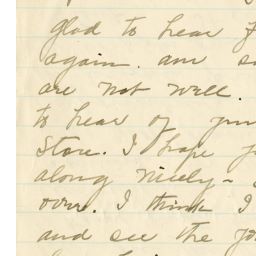 glad to hear f
again. am so
are not well.
to hear of your
Store. I hope y
along nicely -
over. I think I
and see the